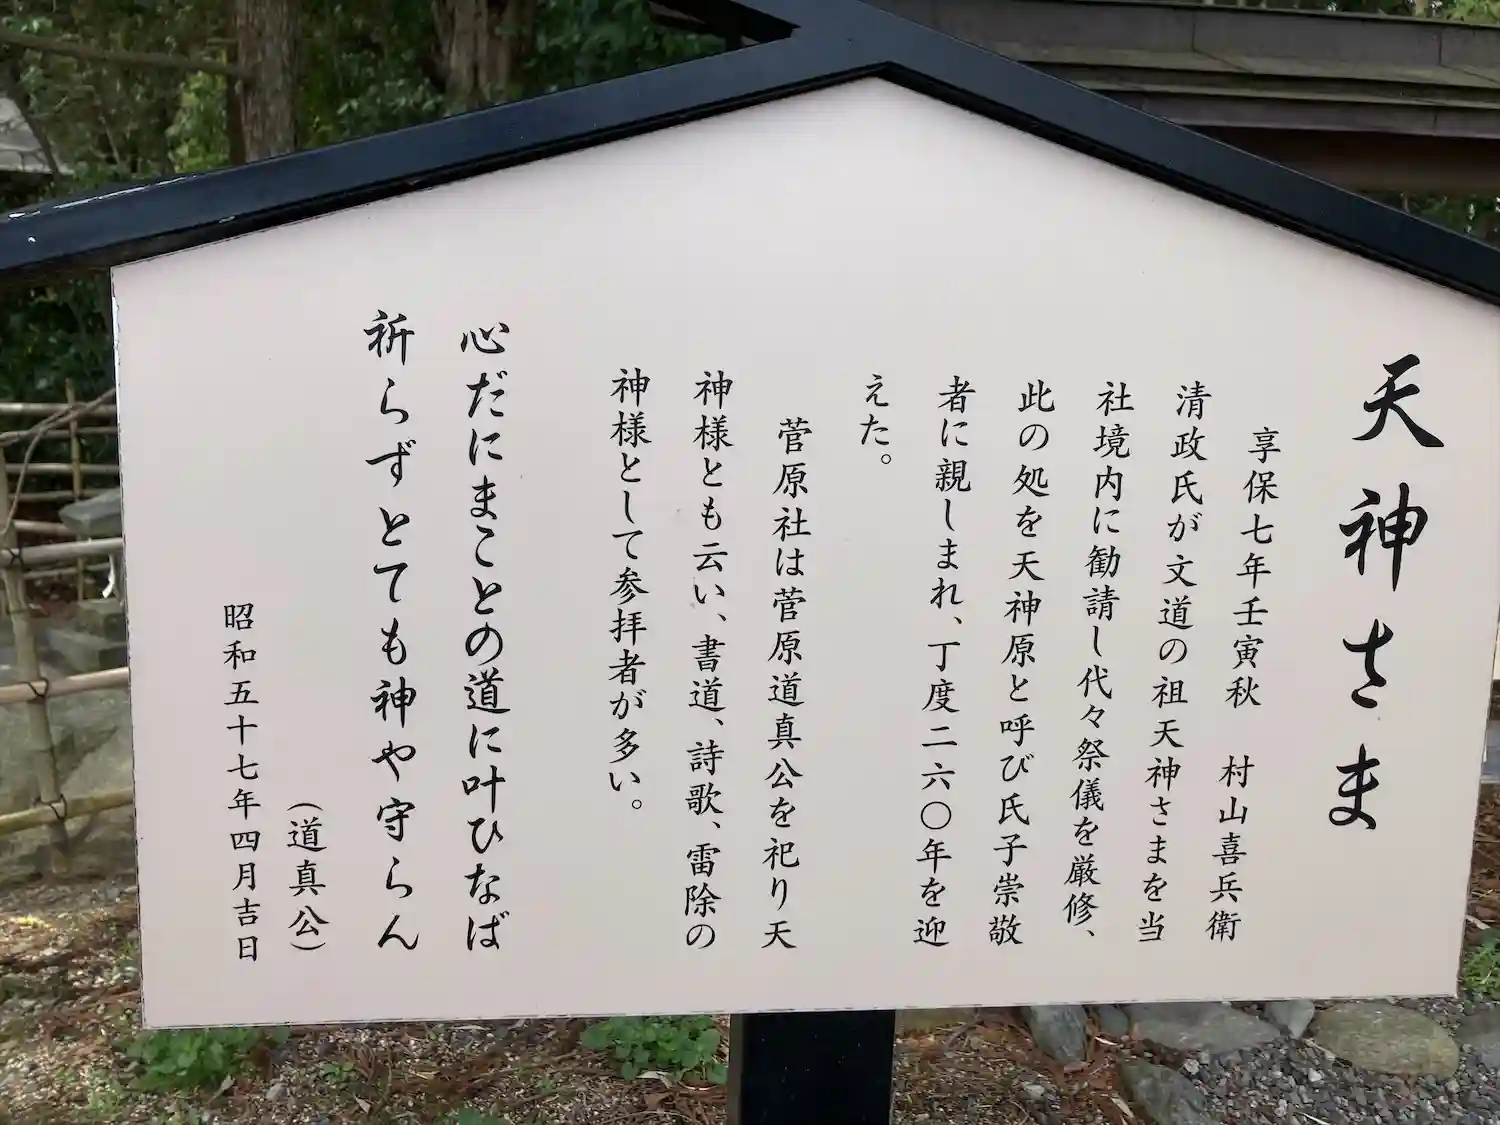 天神さま
享保七年壬寅秋　村山喜兵衛
清政氏が文道の祖天神さまを当
社境内に勧請し代々祭儀を厳修、
此の処を天神原と呼び氏子崇敬
者に親しまれ、丁度二六〇年を迎
えた。
菅原社は菅原道真公を祀り天
神様とも云い、書道、詩歌、雷除の
神様として参拝者が多い。
心だにまことの道に叶ひなば
祈らずとても神や守らん
(道真公)
昭和五十七年四月吉日